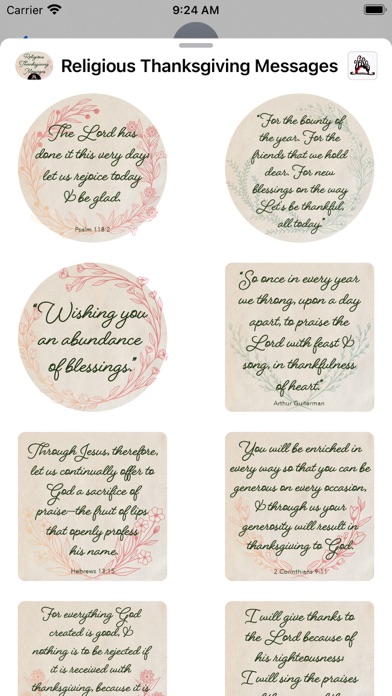 Carrier
9:24 AM
Religious
Thanksgiving
Messages
Religious Thanksgiving Messages
The Lord has
done it this very day;
let us rejoice today
& be glad.
Psalm 118:2
"For the bounty of
the year. For the
friends that we hold
dear. For new
blessings on the way
Let's be thankful,
all today."
"Wishing you
an abundance
of blessings."
"So once in every year
we throng, upon a day
apart, to praise the
Lord with feast &
song, in thankfulness
of heart."
Arthur Guiterman
Through Jesus, therefore,
let us continually offer to
God a sacrifice of
praise—the fruit of lips
that openly profess
his name.
Hebrews 13:15
You will be enriched in
every way so that you can be
generous on every occasion,
& through us your
generosity will result in
thanksgiving to God.
2 Corinthians 9:11
For everything God
created is good, &
nothing is to be rejected if
it is received with
thanksgiving, because it is
I will give thanks to
the Lord because of
his righteousness;
I will sing the praises